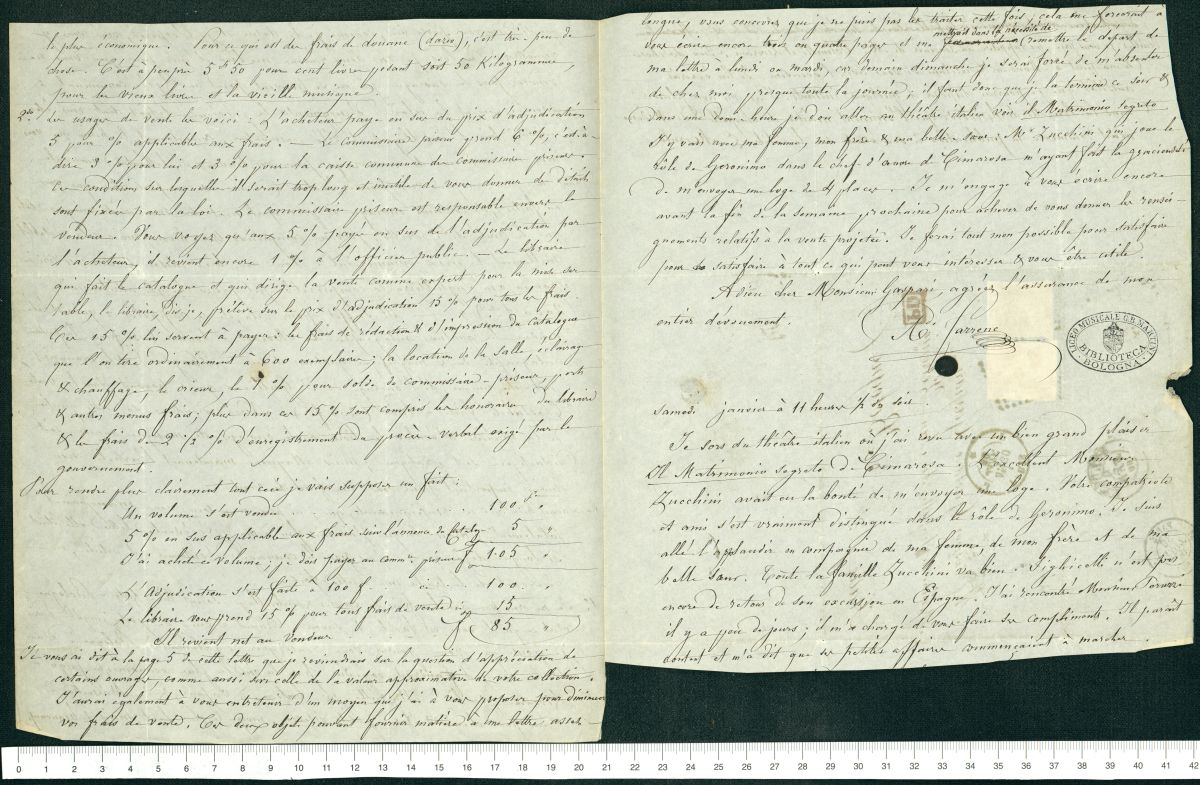 le plus économique. Pour ce qui est des frais de douane (dazio), c'est très peu de
chose. C'est à peu près 5 f 50 pour cent livres pesant soit 50 Kilogrammes,
pour les vieux livres et la vieille musique.
2° Les usages de vente les voici : L'acheteur paye en sus du prix d'adjudication
5 pour % applicable aux frais. — Le commissaire priseur prend 6 %, c'est à
dire 3 % pour lui et 3 % pour la caisse commune des Commissaires priseurs.
Ces conditions sur lesquelles il serait trop long et inutile de vous donner des détails
sont fixées par la loi. Le commissaire priseur est responsable envers le
vendeur. Vous voyez qu'aux 5 % payés en sus de l'adjudication par
l'acheteur, il revient encore 1 % à l'officier public. — Le libraire
qui fait le catalogue et qui dirige la vente comme expert pour la mise sur
table, le libraire, dis je, prélève sur le prix d'adjudication 15 % pour tous les frais.
Ces 15 % lui servent à payer : les frais de rédaction & d'impression du catalogue
que l'on tire ordinairement à 600 exemplaires ; la location de la salle, éclairage
& chauffage, le crieur, le 1 % pour solde du commissaire-priseur, ports
& autres menus frais ; plus dans ces 15 % sont compris les honoraires du libraire
& les frais de 2 ½ % d'enregistrement du procès-verbal exigé par le
gouvernement.
Pour rendre plus clairement tout ceci je vais supposer un fait :
Un volume s'est vendu 100 f "
5 % en sus applicable aux frais suivt l'annonce du Catalogue 5 "
J'ai acheté ce volume ; je dois payer au commre priseur f 105 "
L'Adjudication s'est faite à 100 f ci 100
Le libraire vous prend 15 % pour tous frais de vente ci 15
Il revient net au Vendeur f 85 "
Je vous ai dit à la page 5 de cette lettre que je reviendrais sur la question d'appréciation de
certains ouvrages, comme aussi sur celle de la valeur approximative de votre collection.
J'aurai également à vous entretenir d'un moyen que j'ai à vous proposer pour diminuer
vos frais de vente. Ces deux objets pouvant fournir matière à une lettre assez
longue, vous concevrez que je ne puis pas les traiter cette fois, cela me forcerait à
mettrait dans la nécessité de
vous écrire encore trois ou quatre pages et me remettre le départ de
ma lettre à lundi ou mardi, car demain dimanche je serai forcé de m'absenter
de chez moi presque toute la journée ; il faut donc que je la termine ce soir &
dans une demi heure je dois aller au théâtre italien voir il Matrimonio segreto
J'y vais avec ma femme, mon frère & ma belle sœur ; Mr Zucchini qui joue le
rôle de Geronimo dans le chef d'œuvre de Cimarosa m'ayant fait la gracieuseté
de m'envoyer une loge de 4 places. Je m'engage à vous écrire encore
avant la fin de la semaine prochaine pour achever de vous donner les rensei-
gnements relatifs à la vente projetée. Je ferai tout mon possible pour satisfaire
pour satisfaire à tout ce qui peut vous intéresser & vous être utile.
Adieu cher Monsieur Gaspari, agréez l'assurance de mon
entier dévouement.
PD
Farrenc
LICEO MUSICALE G.B. MARTINI
BIBLIOTECA
BOLOGNA
samedi janvier à 11 heures ½ du soir.
Je sors du théâtre italien où j'ai revu avec un bien grand plaisir
Il Matrimonio segreto de Cimarosa. L'excellent Monsieur
Zucchini avait eu la bonté de m'envoyer une loge. Votre compatriote
et ami s'est vraiment distingué dans le rôle de Geronimo. Je suis
allé l'applaudir en compagnie de ma femme, de mon frère et de ma
belle sœur. Toute la famille Zucchini va bien. Sighicelli n'est pas
encore de retour de son excursion en Espagne. J'ai rencontré Monsieur
il y a peu de jours ; il m'a chargé de vous faire ses compliments. Il paraît
content et m'a dit que ses petites affaires commençaient à marcher.
0 1 2 3 4 5 6 7 8 9 10 11 12 13 14 15 16 17 18 19 20 21 22 23 24 25 26 27 28 29 30 31 32 33 34 35 36 37 38 39 40 41 42